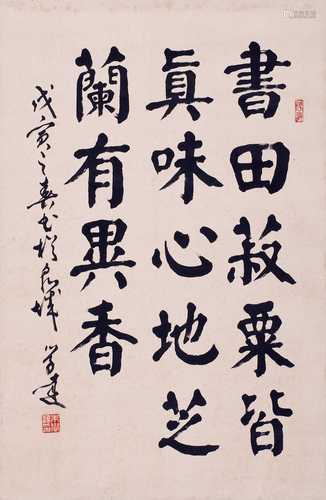 書田菽粟皆
真味心地芝
蘭有異香
戊寅之春書於泉城